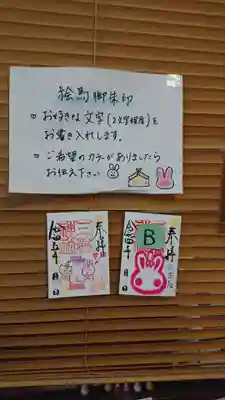 絵馬御朱印
お好きな文字(2文字程度)を
お書き入れします。
ご希望のカラーがありましたら
お伝え下さい
奉拝
令和五年 月 日
奉拝
B
令和五年 月 日